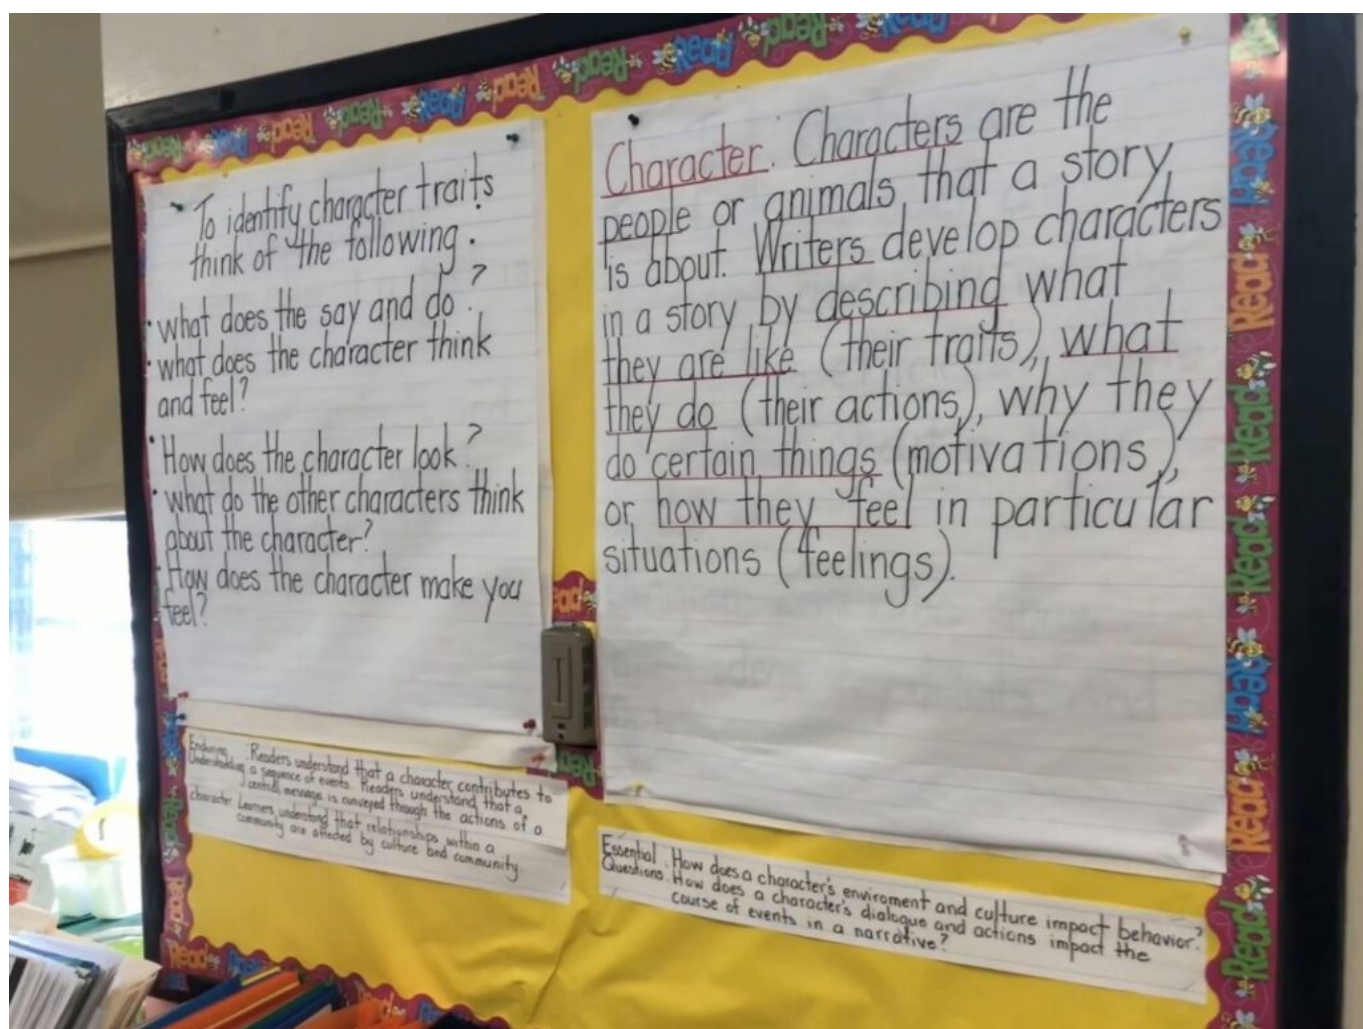 To identify character traits
think of the following.
• what does the say and do?
• what does the character think
and feel?
• How does the character look?
• what do the other characters think
about the character?
• How does the character make you
feel?
Character. Characters are the
people or animals that a story
is about. Writers develop characters
in a story by describing what
they are like (their traits), what
they do (their actions), why they
do certain things (motivations),
or how they feel in particular
situations (feelings).
Enduring . Readers understand that a character contributes to
Understanding a sequence of events. Readers understand that a
central message is conveyed through the actions of a
character. Learners understand that relationships within a
community are affected by culture and community.
Essential . How does a character's enviroment and culture impact behavior?
Questions. How does a character's dialogue and actions impact the
course of events in a narrative?
Read Read Read Read Read Read Read Read Read
Read
Read
Read
Read
Read
Read
Read
Read